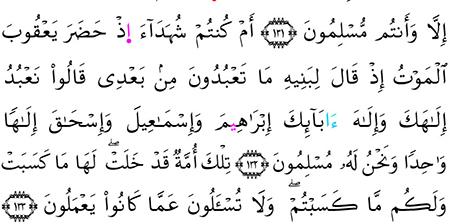 إِلَّا وَأَنتُم مُّسْلِمُونَ ١٣١ أَمْ كُنتُمْ شُهَدَآءَ إِذْ حَضَرَ يَعْقُوبَ
ٱلْمَوْتُ إِذْ قَالَ لِبَنِيهِ مَا تَعْبُدُونَ مِنۢ بَعْدِى قَالُوا۟ نَعْبُدُ
إِلَٰهَكَ وَإِلَٰهَ ءَابَآئِكَ إِبْرَٰهِيمَ وَإِسْمَٰعِيلَ وَإِسْحَٰقَ إِلَٰهًا
وَٰحِدًا وَنَحْنُ لَهُۥ مُسْلِمُونَ ١٣٢ تِلْكَ أُمَّةٌ قَدْ خَلَتْۖ لَهَا مَا كَسَبَتْ
وَلَكُم مَّا كَسَبْتُمْۖ وَلَا تُسْـَٔلُونَ عَمَّا كَانُوا۟ يَعْمَلُونَ ١٣٣